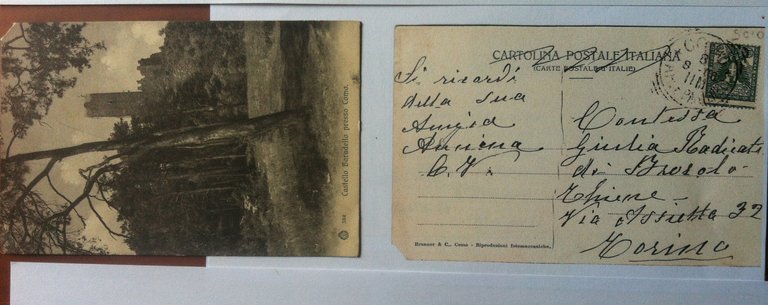 Castello Baradello presso Como.
CARTOLINA POSTALE ITALIANA
(CARTE POSTALE D'ITALIE)
Si ricordi
della sua
Amica
C. V.
Contessa
Giulia Radicati
di Brosolo
Thiene
Via Assietta 32
Torino
Brunner & C., Como - Riproduzioni fotomeccaniche.